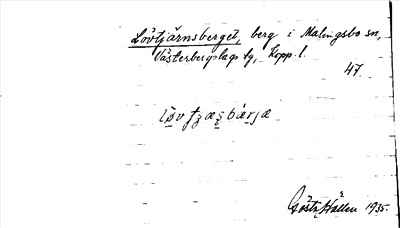 Lövtjärnsberget, berg i Malingsbo sn,
Västerbergslags tg, Kopp. l.
47.
Gösta Hallén 1935.